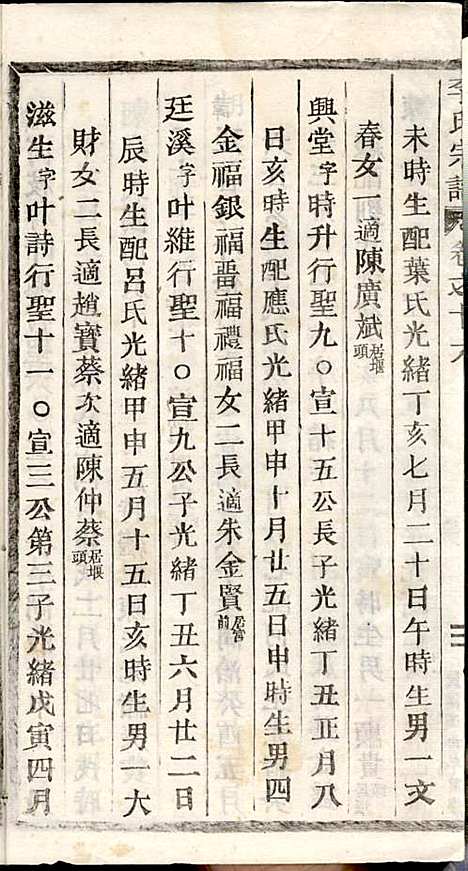 李氏宗譜 卷之十六
未時生配葉氏光緒丁亥七月二十日午時生男一文
春女一適陳廣斌居堰頭
興堂字時升行聖九〇宣十五公長子光緒丁丑正月八
日亥時生配應氏光緒甲申十月廿五日申時生男四
金福銀福晋福禮福女二長適朱金賢居當前
廷溪字叶維行聖十〇宣九公子光緒丁丑六月廿二日
辰時生配呂氏光緒甲申五月十五日亥時生男一大
財女二長適趙寶蔡次適陳仲蔡居堰頭
滋生字叶詩行聖十一〇宣三公第三子光緒戊寅四月